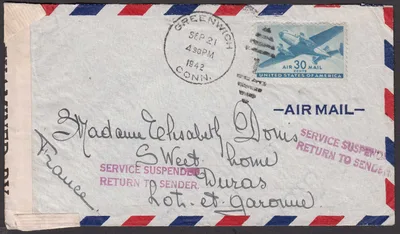 GREENWICH
SEP 21
4 30 PM
1942
CONN.
AIR 30 MAIL
CENTS
UNITED STATES OF AMERICA
AIR MAIL
Madame Elisabeth Doms
Sweet home
Duras
Lot-et-garonne
France
SERVICE SUSPENDED
RETURN TO SENDER
SERVICE SUSPENDED
RETURN TO SENDER
BY